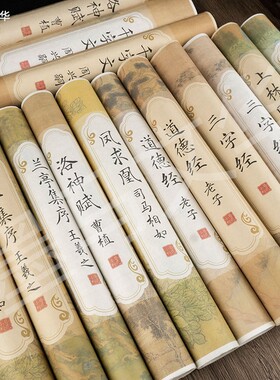 华
洛神赋
千字文
周兴嗣
兰亭集序
王羲之
洛神赋
曹植
凤求凰
司马相如
道德经
老子
道德经
老子
三字经
三字经
上林